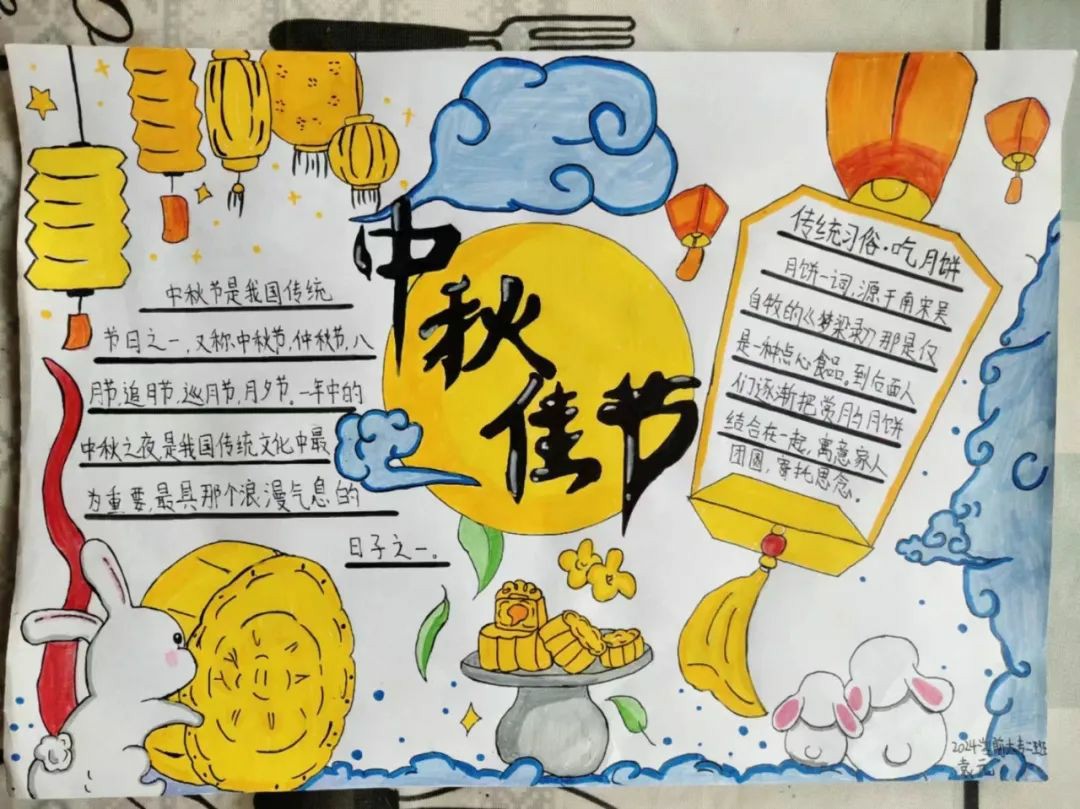 中秋佳节
中秋节是我国传统
节日之一,又称中秋节,仲秋节,八
月节,追月节,巡月节,月夕节。一年中的
中秋之夜,是我国传统文化中最
为重要,最具那个浪漫气息的
日子之一。
传统习俗·吃月饼
月饼一词,源于南宋吴
自牧的《梦梁录》那是仅
是一种点心食品。到后面人
们逐渐把赏月与月饼
结合在一起,寓意家人
团圆,寄托思念。
2024学前大专二班
袁元